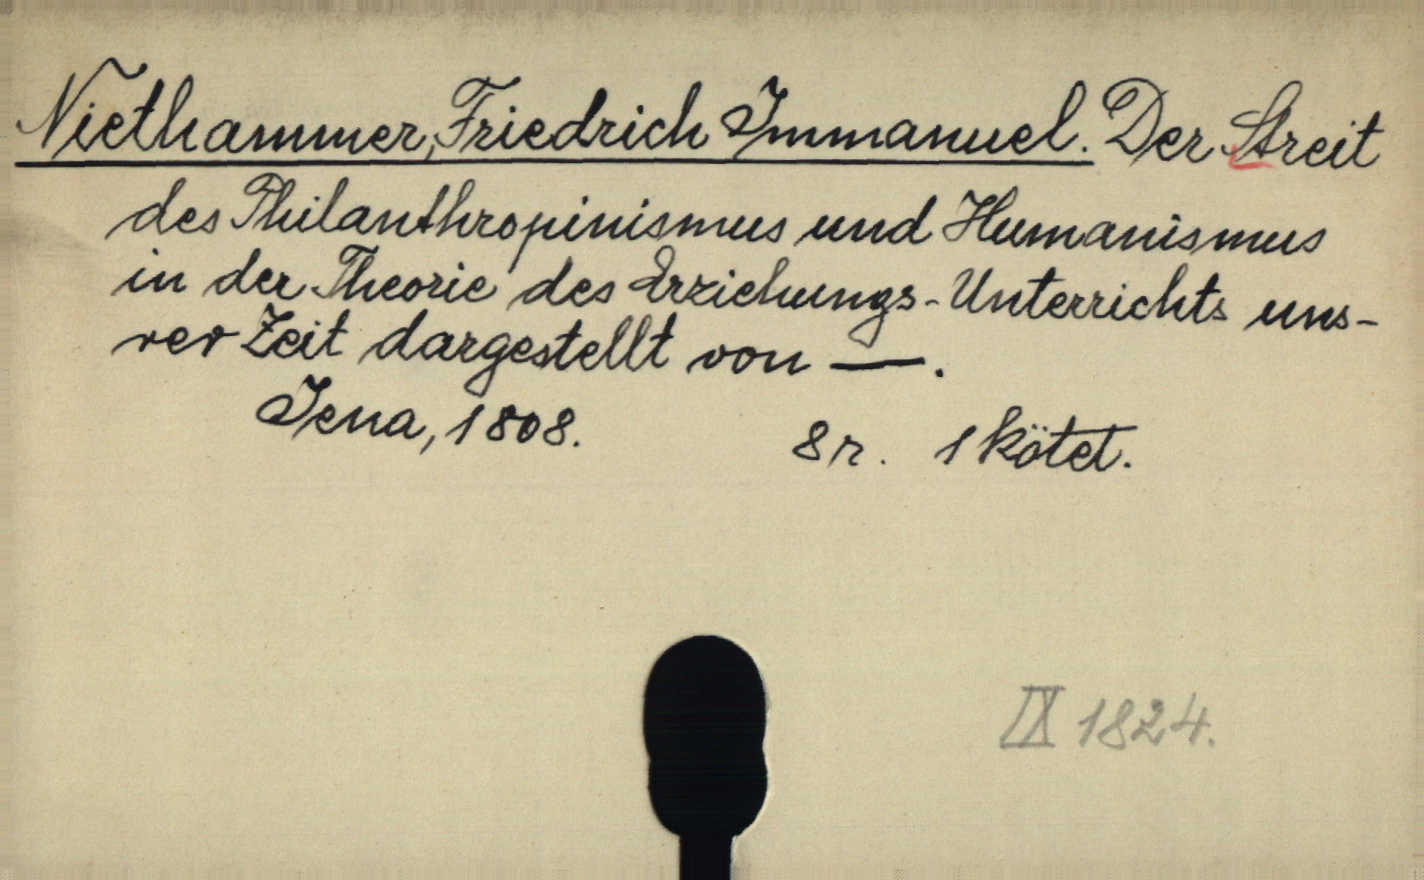 Niethammer, Friedrich Immanuel. Der Streit
des Philanthropinismus und Humanismus
in der Theorie des Erziehungs-Unterrichts uns-
rer Zeit dargestellt von —.
Jena, 1808. 8r. 1 kötet.
IX 1824.